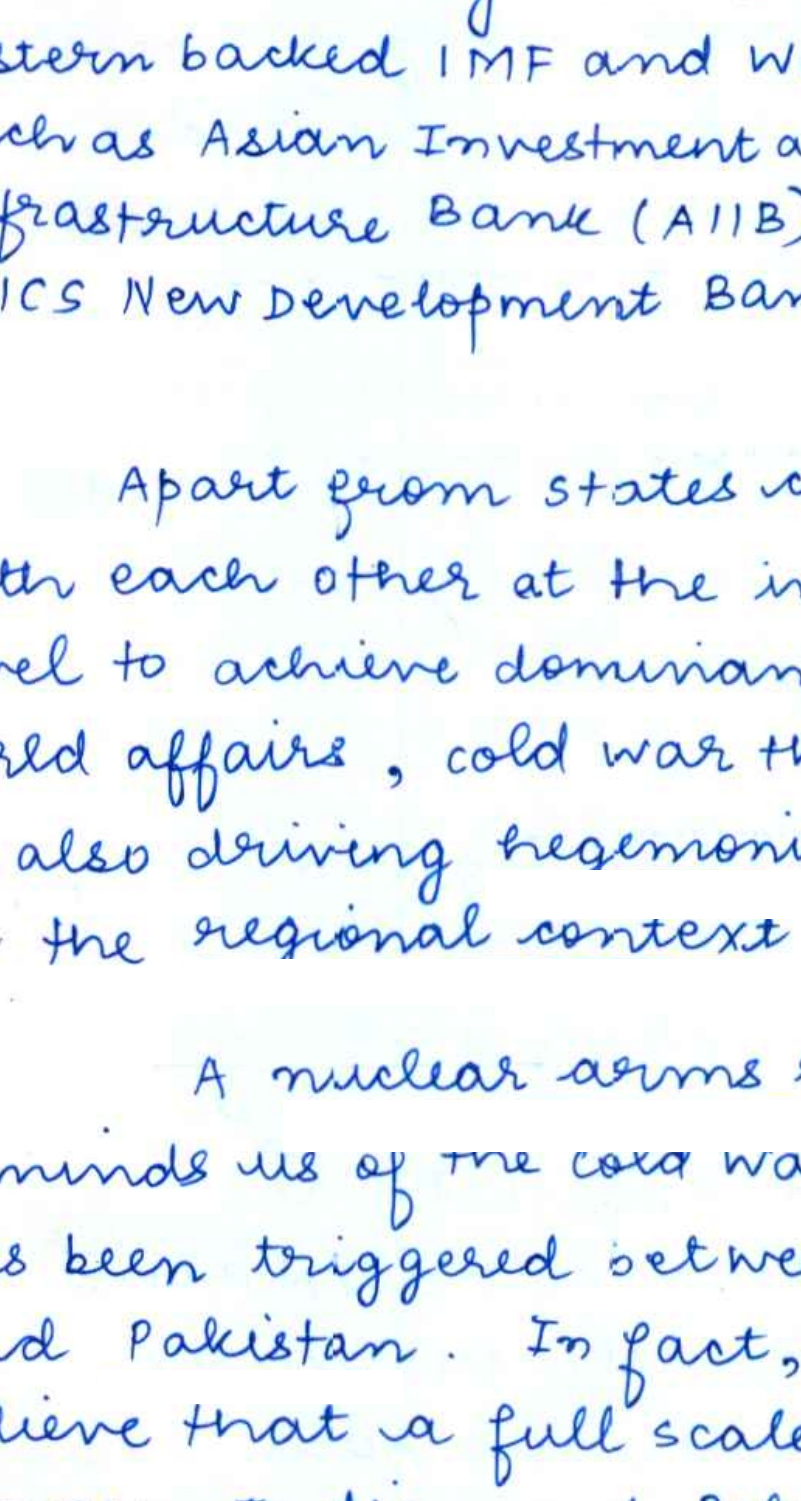 stern backed IMF and W
ch as Asian Investment a
frastructure Bank (AIIB)
ICS New Development Ban
Apart from states c
th each other at the in
vel to achieve dominan
rld affairs, cold war th
also driving hegemoni
the regional context
A nuclear arms
minds us of the cold wa
s been triggered betwe
d Pakistan. In fact,
lieve that a full scale